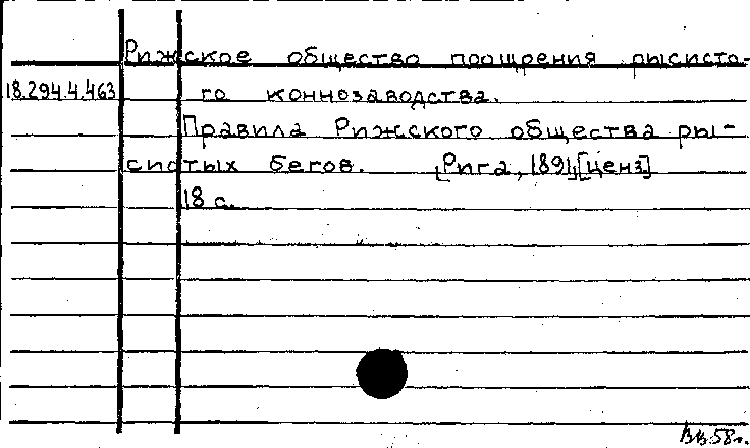 Рижское общество поощрения рысисто-
18.294.4.463 го коннозаводства.
Правила Рижского общества ры-
систых бегов. [Рига, 1891] [ценз]
18 с.
58 г.